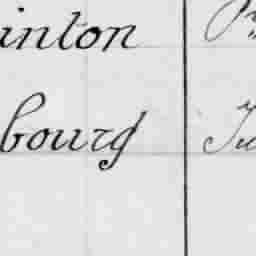 inton
bourg